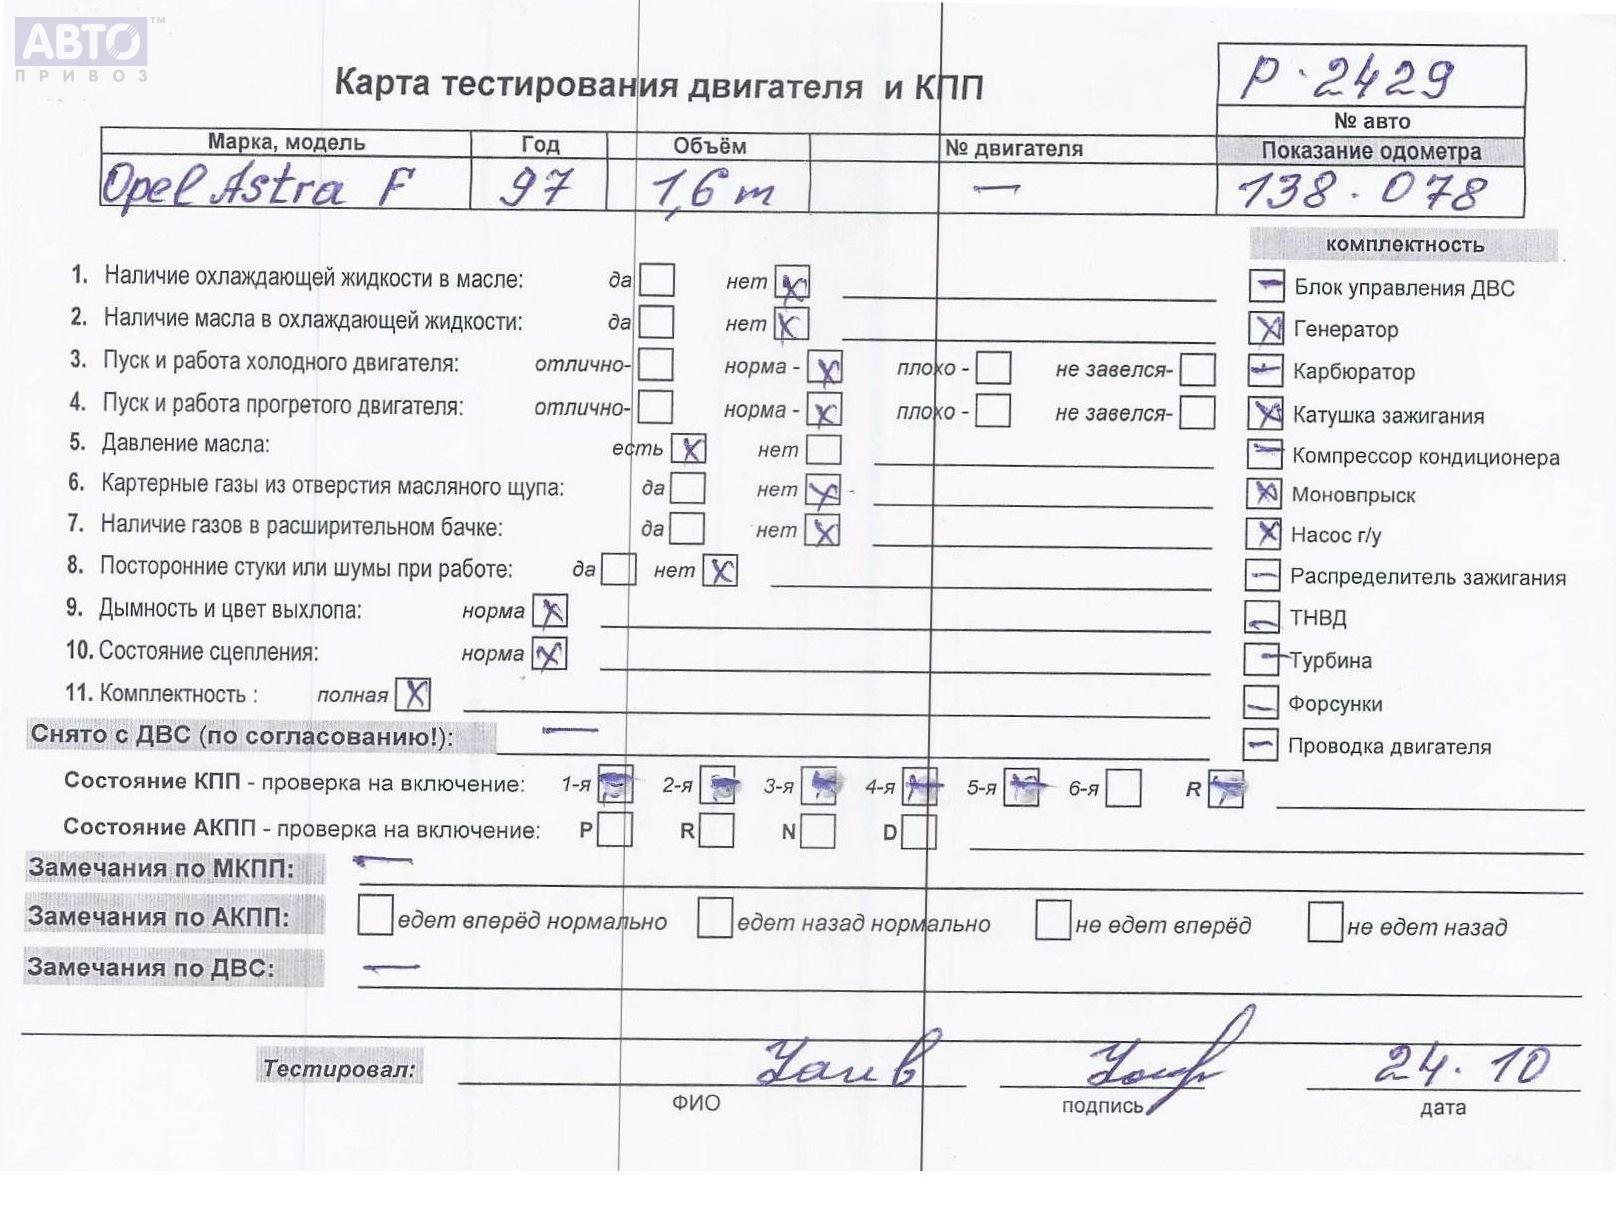 АВТО™
ПРИВОЗ
Карта тестирования двигателя и КПП
Р·2429
№ авто
Марка, модель Год Объём № двигателя Показание одометра
Opel Astra F 97 1,6 m — 138.078
комплектность
1. Наличие охлаждающей жидкости в масле: да нет
Блок управления ДВС
2. Наличие масла в охлаждающей жидкости: да нет
Генератор
3. Пуск и работа холодного двигателя: отлично- норма - плохо - не завелся-
Карбюратор
4. Пуск и работа прогретого двигателя: отлично- норма - плохо - не завелся-
Катушка зажигания
5. Давление масла: есть нет
Компрессор кондиционера
6. Картерные газы из отверстия масляного щупа: да нет
Моновпрыск
7. Наличие газов в расширительном бачке: да нет
Насос г/у
8. Посторонние стуки или шумы при работе: да нет
Распределитель зажигания
9. Дымность и цвет выхлопа: норма
ТНВД
10. Состояние сцепления: норма
Турбина
11. Комплектность : полная
Форсунки
Снято с ДВС (по согласованию!): —
Проводка двигателя
Состояние КПП - проверка на включение: 1-я 2-я 3-я 4-я 5-я 6-я R
Состояние АКПП - проверка на включение: P R N D
Замечания по МКПП: —
Замечания по АКПП: едет вперёд нормально едет назад нормально не едет вперёд не едет назад
Замечания по ДВС: —
Тестировал: 24.10
ФИО подпись дата